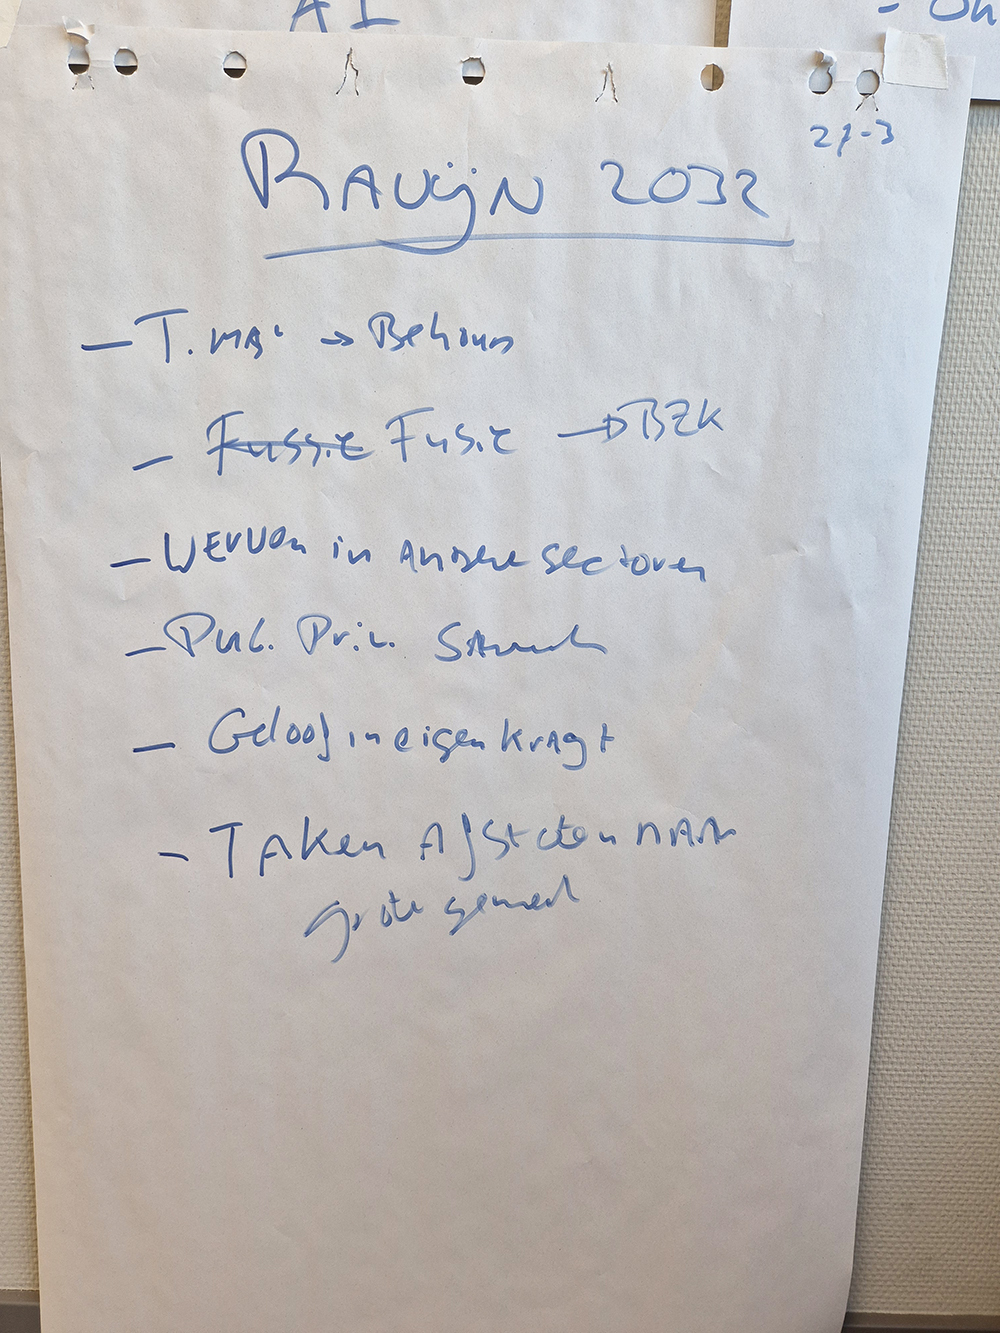 AI
27-3
RAVIJN 2032
- T. MAN → Behoud
- Fussie Fusie → BZK
- Werven in andere sectoren
- Pub. Priv. Samenw
- Geloof in eigen kragt
- Taken afstoten naar
grote gemeent